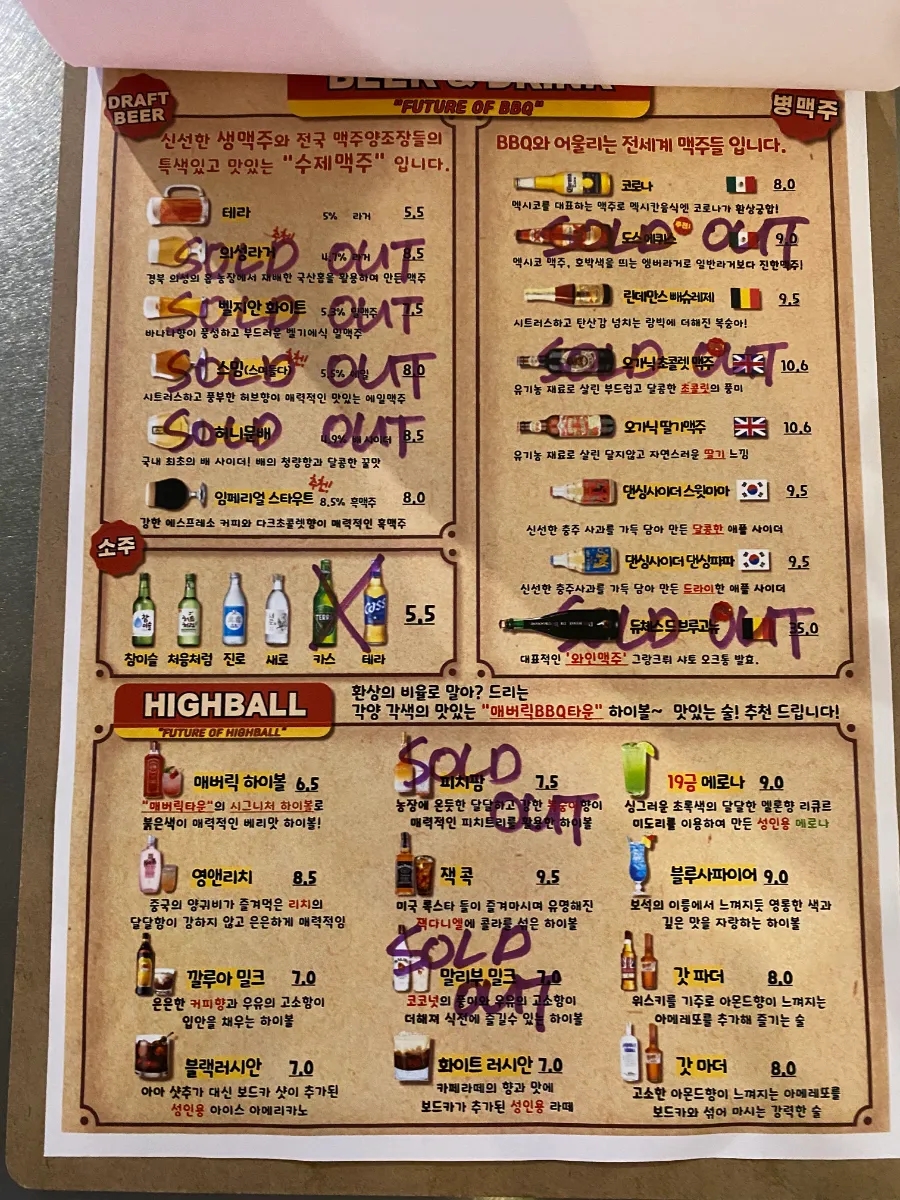 BEER & DRINK
"FUTURE OF BBQ"
DRAFT
BEER
신선한 생맥주와 전국 맥주양조장들의
특색있고 맛있는 "수제맥주" 입니다.
테라 5% 라거 5.5
의성라거 4.7% 라거 8.5
SOLD OUT
경북 의성의 홉 농장에서 재배한 국산홉을 활용하여 만든 맥주
벨지안 화이트 5.3% 밀맥주 7.5
SOLD OUT
바나나향이 풍성하고 부드러운 벨기에식 밀맥주
(스미듬다) 8.0
SOLD OUT
시트러스하고 풍부한 허브향이 매력적인 맛있는 에일맥주
허니문배 4.9% 배 사이더 8.5
SOLD OUT
국내 최초의 배 사이더! 배의 청량함과 달콤한 꿀맛
임페리얼 스타우트 추천! 8.5% 흑맥주 8.0
강한 에스프레소 커피와 다크초콜렛향이 매력적인 흑맥주
소주
5.5
참이슬 처음처럼 진로 새로 카스 테라
병맥주
BBQ와 어울리는 전세계 맥주들 입니다.
코로나 8.0
멕시코를 대표하는 맥주로 멕시칸음식엔 코로나가 환상궁합!
도스에퀴스 9.0
SOLD OUT
멕시코 맥주, 호박색을 띄는 엠버라거로 일반라거보다 진한맥주!
린데만스 빼슈레제 9.5
시트러스하고 탄산감 넘치는 람빅에 더해진 복숭아!
오가닉 초콜렛 맥주 10.6
SOLD OUT
유기농 재료로 살린 부드럽고 달콤한 초콜릿의 풍미
오가닉 딸기맥주 10.6
유기농 재료로 살린 달지않고 자연스러운 딸기 느낌
댄싱사이더 스윗마마 9.5
신선한 충주 사과를 가득 담아 만든 달콤한 애플 사이더
댄싱사이더 댄싱파파 9.5
신선한 충주사과를 가득 담아 만든 드라이한 애플 사이더
듀체스 드 브루고뉴 35.0
SOLD OUT
대표적인 '와인맥주' 그랑크뤼 샤토 오크통 발효.
HIGHBALL
"FUTURE OF HIGHBALL"
환상의 비율로 말아? 드리는
각양 각색의 맛있는 "매버릭BBQ타운" 하이볼~ 맛있는 술! 추천 드립니다!
매버릭 하이볼 6.5
"매버릭타운"의 시그니처 하이볼로
붉은색이 매력적인 베리맛 하이볼!
피치팜 7.5
SOLD
OUT
농장에 온듯한 달달하고 강한 복숭아향이
매력적인 피치트리를 활용한 하이볼
19금 메로나 9.0
싱그러운 초록색의 달달한 멜론향 리큐르
미도리를 이용하여 만든 성인용 메로나
영앤리치 8.5
중국의 양귀비가 즐겨먹은 리치의
달달함이 강하지 않고 은은하게 매력적임
잭 콕 9.5
미국 록스타 들이 즐겨마시며 유명해진
잭다니엘에 콜라를 섞은 하이볼
블루사파이어 9.0
보석의 이름에서 느껴지듯 영롱한 색과
깊은 맛을 자랑하는 하이볼
깔루아 밀크 7.0
은은한 커피향과 우유의 고소함이
입안을 채우는 하이볼
말리부 밀크 7.0
SOLD
OUT
코코넛의 풍미와 우유의 고소함이
더해져 식전에 즐길수 있는 하이볼
갓 파더 8.0
위스키를 기주로 아몬드향이 느껴지는
아메레또를 추가해 즐기는 술
블랙러시안 7.0
아아 샷추가 대신 보드카 샷이 추가된
성인용 아이스 아메리카노
화이트 러시안 7.0
카페라떼의 향과 맛에
보드카가 추가된 성인용 라떼
갓 마더 8.0
고소한 아몬드향이 느껴지는 아메레또를
보드카와 섞어 마시는 강력한 술